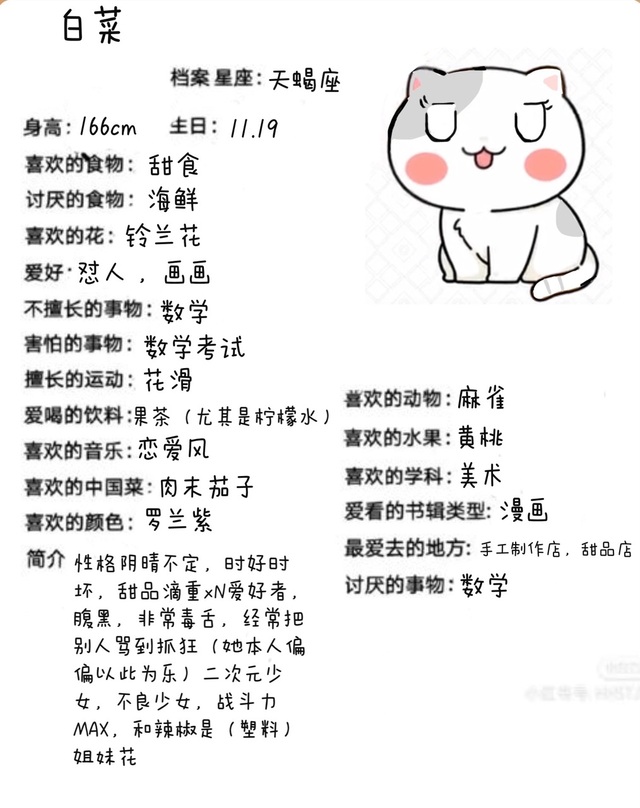 白菜
档案 星座：天蝎座
身高：166cm 主日：11.19
喜欢的食物：甜食
讨厌的食物：海鲜
喜欢的花：铃兰花
爱好·怼人，画画
不擅长的事物：数学
害怕的事物：数学考试
擅长的运动：花滑
爱喝的饮料：果茶（尤其是柠檬水）
喜欢的音乐：恋爱风
喜欢的中国菜：肉末茄子
喜欢的颜色：罗兰紫
喜欢的动物：麻雀
喜欢的水果：黄桃
喜欢的学科：美术
爱看的书辑类型：漫画
最爱去的地方：手工制作店，甜品店
讨厌的事物：数学
简介 性格阴晴不定，时好时
坏，甜品滴重xN爱好者，
腹黑，非常毒舌，经常把
别人骂到抓狂（她本人偏
偏以此为乐）二次元少
女，不良少女，战斗力
MAX，和辣椒是（塑料）
姐妹花